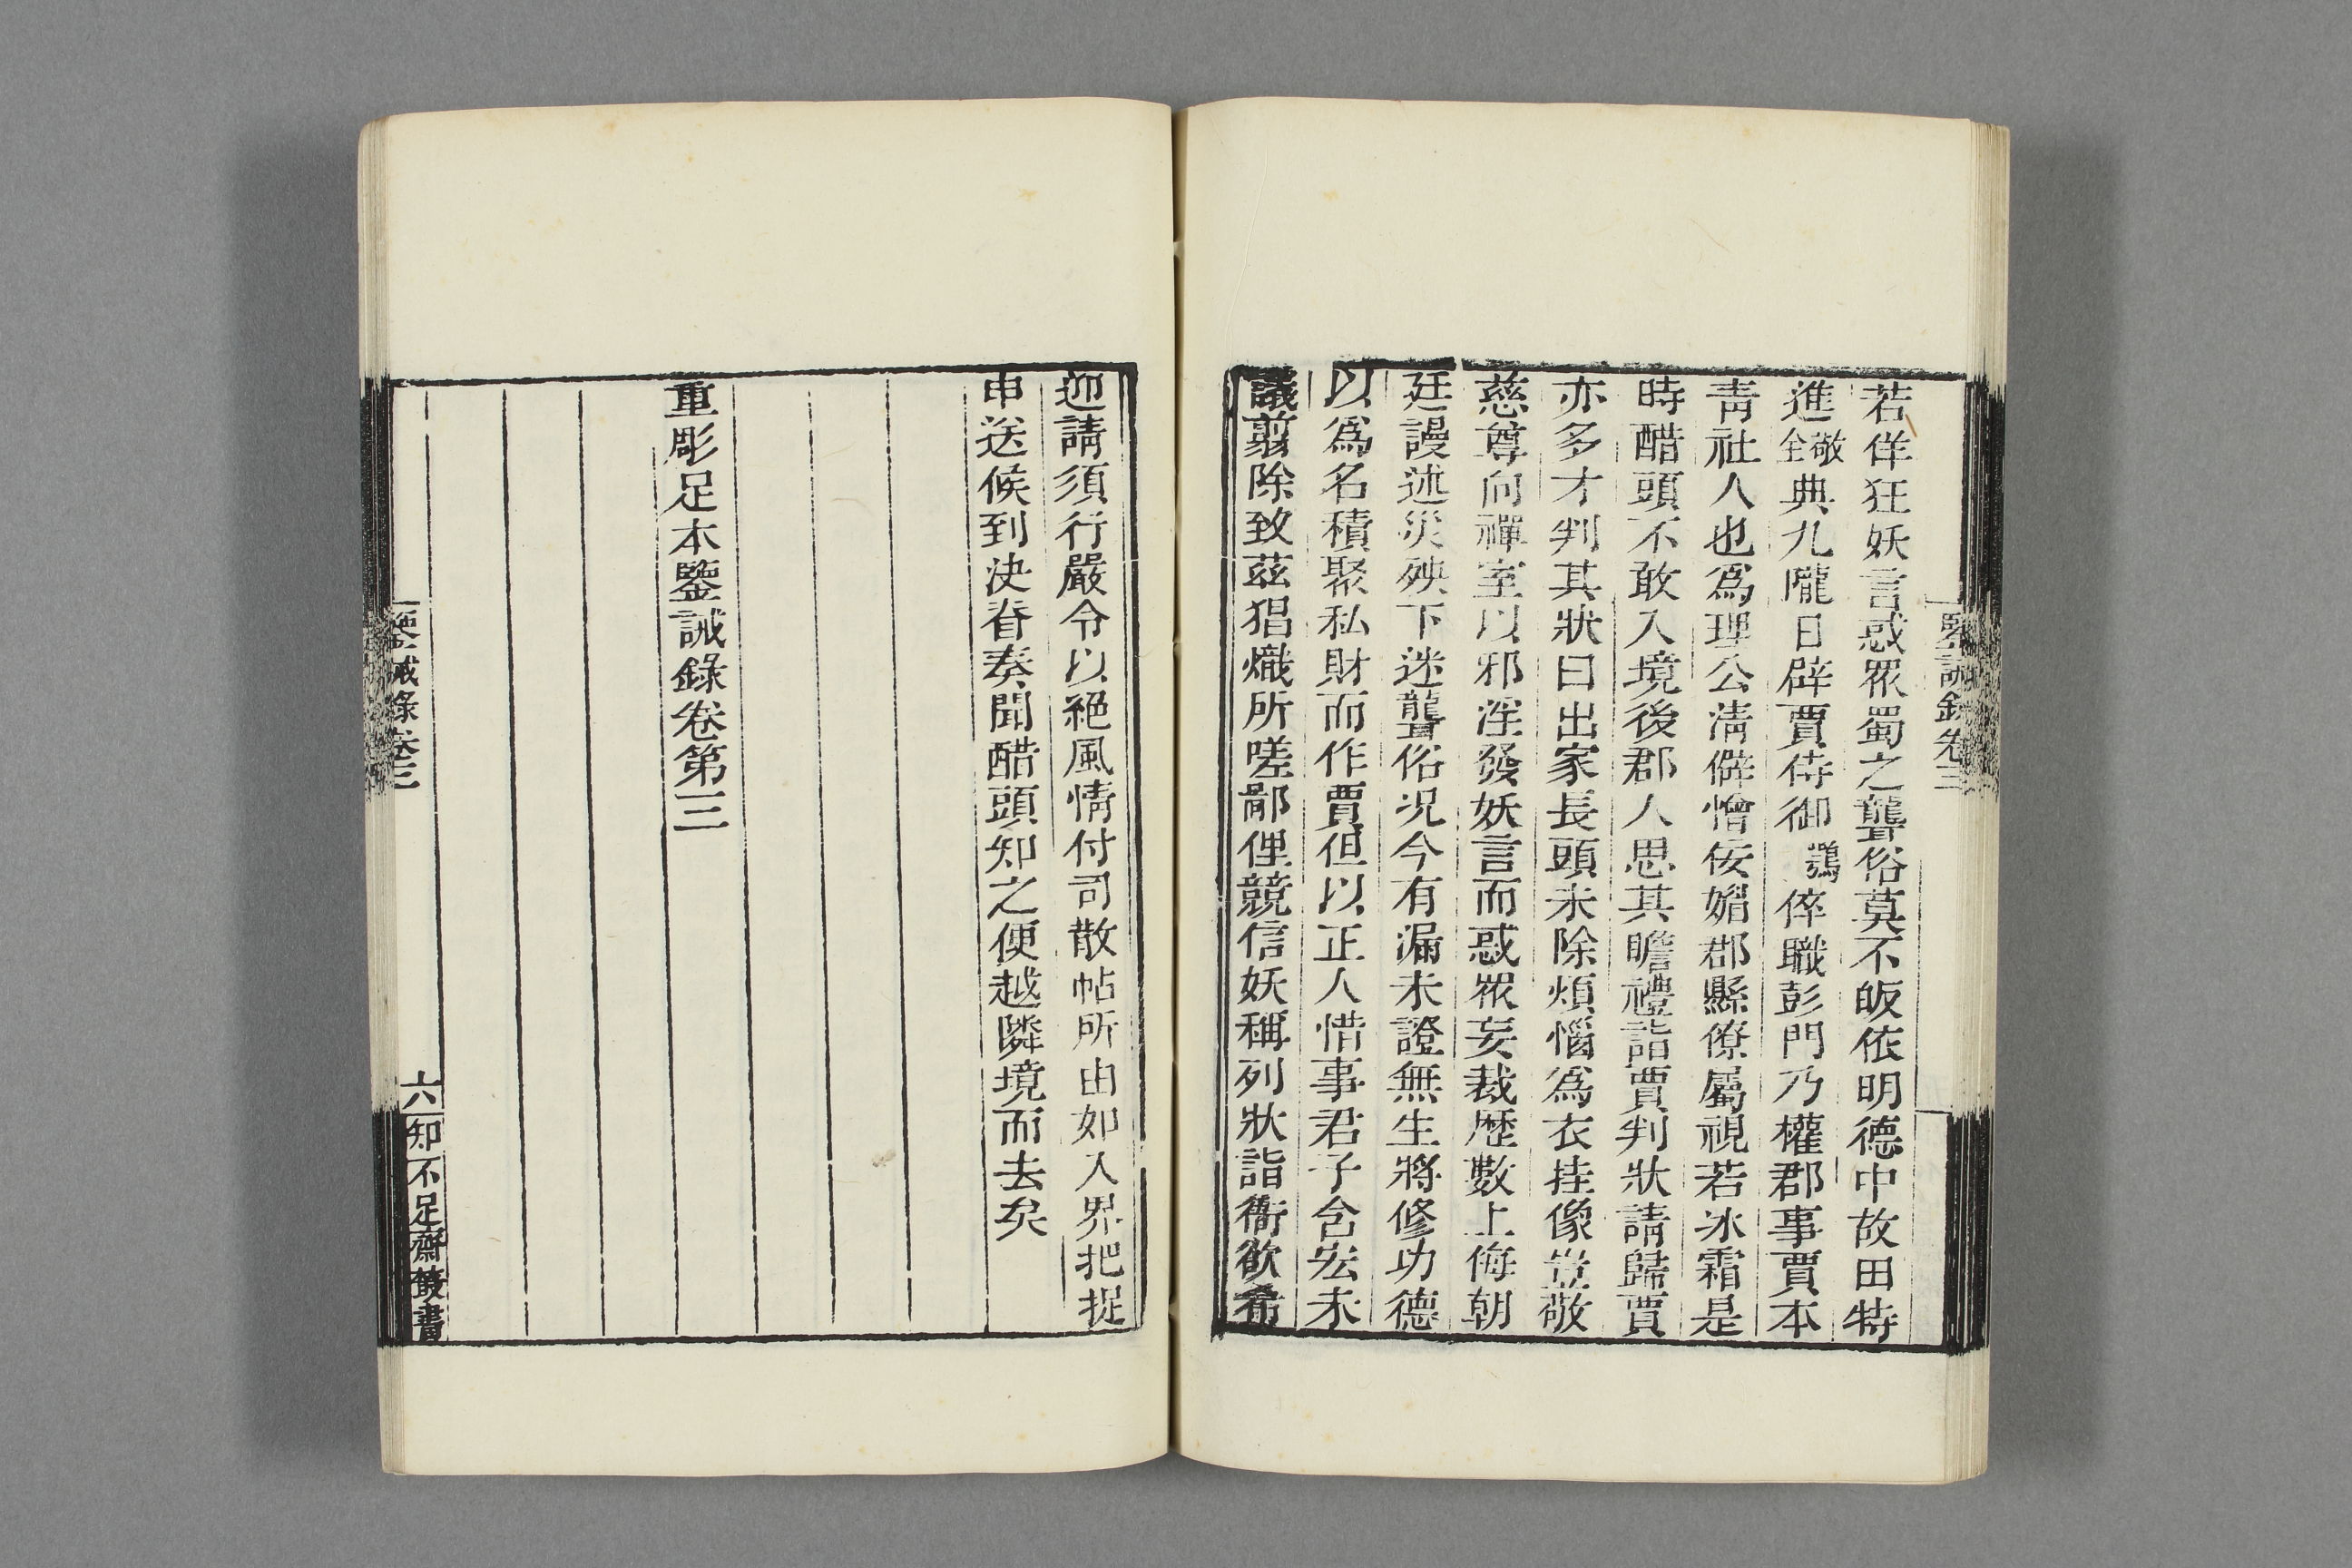 若佯狂妖言惑眾蜀之聾俗莫不皈依明德中故田特
進敬全典九隴日辟賈侍御鶚倅職彭門乃權郡事賈本
靑社人也爲理公淸僻憎佞媚郡縣僚屬視若冰霜是
時醋頭不敢入境後郡人思其瞻禮詣賈判狀請歸賈
亦多才判其狀曰出家長頭未除煩惱爲衣挂像豈敬
慈尊向禪室以邪淫發妖言而惑眾妄裁歷數上侮朝
廷謾述災殃下迷聾俗况今有漏未證無生將修功德
以爲名積聚私財而作賈但以正人惜事君子含宏未
議翦除致茲猖熾所嗟鄙俚競信妖稱列狀詣衙欲希
鑒誡錄卷三
迎請須行嚴令以絕風情付司散帖所由如入界把捉
申送候到決脊奏聞醋頭知之便越隣境而去矣
重彫足本鑒誡錄卷第三
鑒誡錄卷三
六
知不足齋叢書